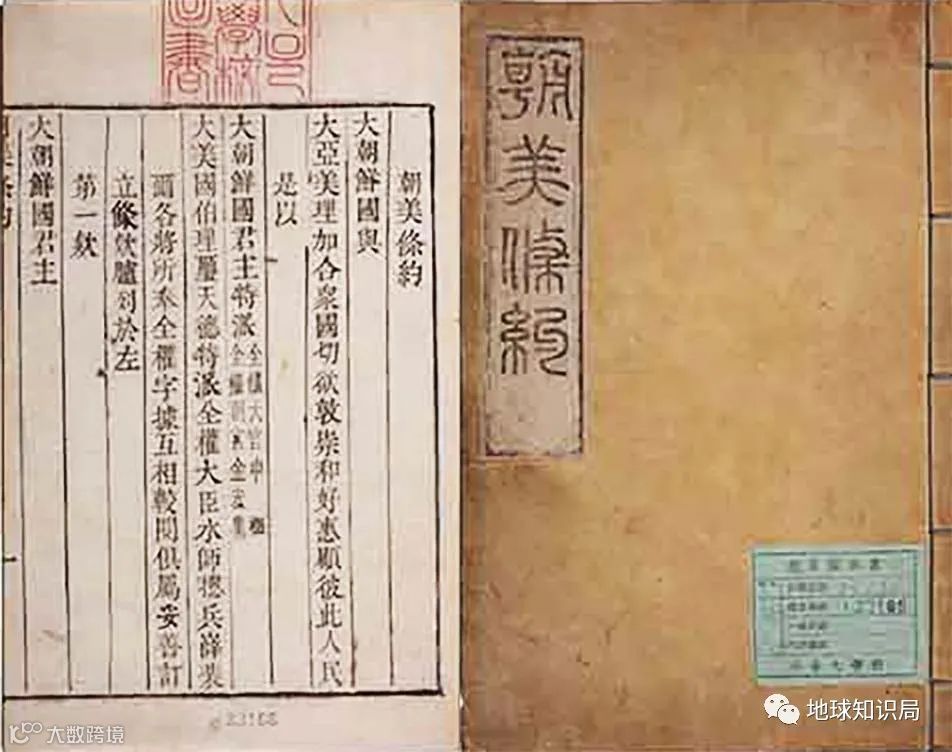 朝美條約
朝美條約
大朝鮮國與
大亞美理加合衆國切欲敦崇和好惠顧彼此人民
是以
大朝鮮國君主特派
全權大官申櫶
全權副官金宏集
大美國伯理璽天德特派全權大臣水師摠兵薛斐
爾各將所奉全權字據互相較閱俱屬妥善訂
立條欵臚列於左
第一欵
大朝鮮國君主
一
地球知识局
大数跨境